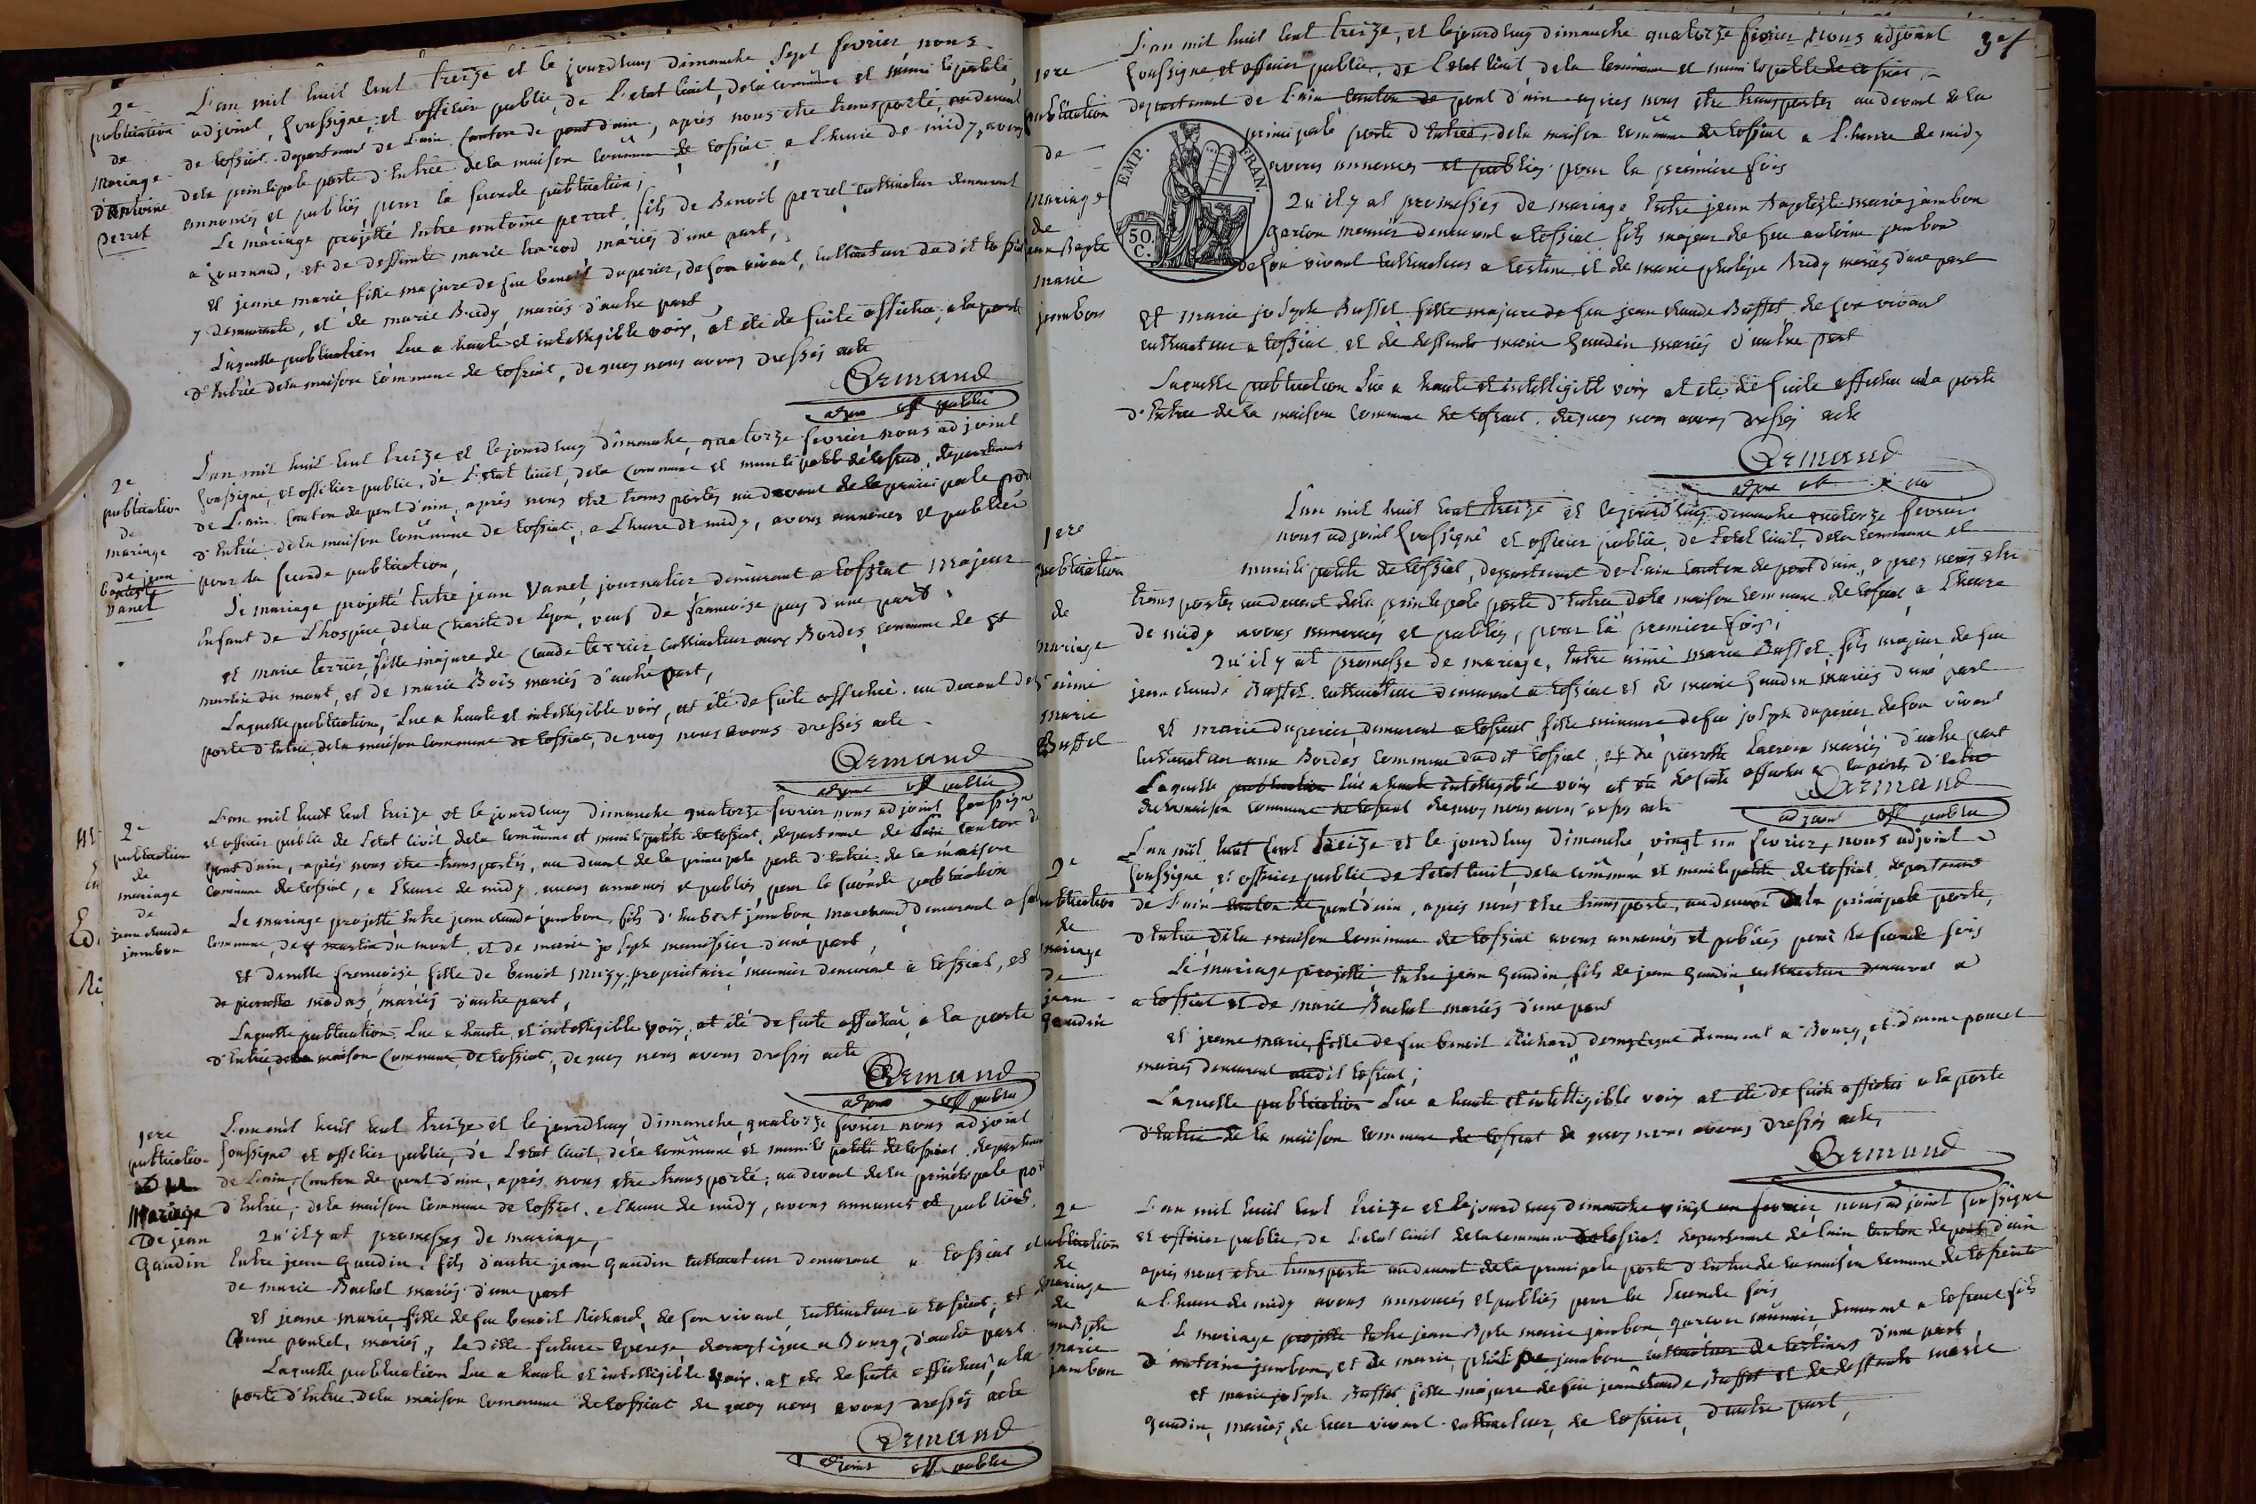 2e
publication
de
Mariage
d'Antoine
perret
L'an mil huit cent treize et le jourdhuy dimanche sept fevrier nous
adjoint, soussigné, et officier public, de L'etat Civil, dela commune et municipalité
de tossiat. departement de L'ain Canton de pont d'ain, après nous etre transporté, au devant
dela principale porte d'Entrée dela maison commune de tossiat, a L'heure de midy, avons
annoncés et publiés pour la seconde publication;
Le mariage projetté Entre antoine perret. fils de Benoit perret cultivateur demeurant
a journand, et de deffunte marie mariés d'une part,
et jeane marie, fille majeure de feu benoit duperier, de son vivant, cultivateur du dit tossiat
y demeurante, et de marie Bredy, mariés d'autre part,
Laquelle publication Lue a haute et intelligible voix, at été de suite affichée, a la porte
d'Entrée dela maison commune de tossiat, de quoy nous avons dressés acte
Armand
adjoint off public
2e
publication
de
mariage
de jean
vanet
L'an mil huit cent treize et lejourdhuy dimanche quatorze fevrier nous adjoint
soussigné, et officier public, de L'etat Civil, dela Commune et municipalité de tossiat, departement
de L'ain Canton de pont d'ain, après nous etre transportés au devant de la principale porte
d'Entrée dela maison commune de tossiat, a L'heure de midy, avons annoncés et publiés
pour la seconde publication,
Le mariage projetté Entre jean Vanet, journalier demeurant a tossiat majeur
Enfant de L'hospice dela Charité de Lyon, veuf de francoise puy d'une part.
et marie terrier, fille majeure de Claude terrier Cultivateur aux Bordes, commune de st
martin du mont, et de marie Bois mariés d'autre part,
Laquelle publication, Lue a haute et intelligible voix, at été de suite affichée. au devant de la
porte d'Entrée dela maison commune de tossiat, de quoy nous avons dressés acte
Armand
adjoint off public
2e
publication
de
mariage
de
jean claude
jambon
L'an mil huit cent treize et le jourdhuy dimanche quatorze fevrier nous adjoint soussigné
et officier public de L'etat Civil dela commune et municipalité de tossiat, departement de L'ain Canton de
pont d'ain, après nous etre transportés, au devant de la principale porte d'Entrée de la maison
Commune de tossiat, a L'heure de midy, avons annoncés et publiés, pour la seconde publication
Le mariage projetté Entre jean claude jambon, fils d'humbert jambon marchand demeurant a
commune, de st martin du mont, et de marie joseph d'une part,
et francoise, fille de benoit propriétaire meunier demeurant a tossiat, et
de pierrette mariés d'autre part,
Laquelle publication Lue a haute et intelligible voix, at été de suite affichée, a la porte
d'Entrée, dela maison Commune de tossiat, de quoy nous avons dressés acte
Armand
adjoint off public
1ere
publication
Mariage
De jean
Gaudin
L'an mil huit cent treize et le jourdhuy dimanche quatorze fevrier nous adjoint
soussigné et officier public, de L'etat Civil, dela commune et municipalité de tossiat. departement
de L'ain, Canton de pont d'ain, après nous etre transporté, au devant dela principale porte
d'Entrée, dela maison Commune de tossiat, a L'heure de midy, avons annoncés et publiés.
Qu'il y at promesses de mariage,
Entre jean Gaudin. fils d'autre jean Gaudin cultivateur demeurant a tossiat et
de marie Bachel mariés d'une part
et jeane marie fille de feu benoit Richard, de son vivant, Cultivateur a tossiat, et
poncet, mariés, Ladite future Epouse domestique a Bourg, d'autre part
Laquelle publication Lue a haute et intelligible voix. at été de suite affichée, a la
porte d'Entrée dela maison commune de tossiat de quoy nous avons dressés acte
Armand
adjoint off public
1ere
publication
de
Mariage
de
jean Bapte
marie
jambon
EMP. FRAN.
50.
C.
L'an mil huit cent treize, et lejourdhuy dimanche quatorze fevrier nous adjoint
soussigné et officier public, de L'etat Civil, dela Commune et municipalité de tossiat,
departement de L'ain, Canton de pont d'ain après nous etre transportés au devant de la
principale porte d'Entrée, dela maison commune de tossiat a L'heure de midy
avons annoncés et publiés pour la première fois
Qu'il y at promesses de mariage Entre jean baptiste marie jambon
garçon meunier demeurant a tossiat fils majeur de feu antoine jambon
de son vivant cultivateur a et de marie Bredy mariés d'une part
Et marie joseph Buffet fille majeure de feu jean claude Buffet de son vivant
cultivateur a tossiat, et de deffunte marie Gaudin mariés d'autre part
Laquelle publication Lue a haute et intelligible voix at été de suite affichée a la porte
d'Entrée de la maison Commune de tossiat. de quoy nous avons dressés acte
Armand
1ere
publication
de
mariage
d'aimé
marie
Buffet
L'an mil huit cent treize et lejourdhuy dimanche quatorze fevrier
nous adjoint soussigné et officier public, de L'etat Civil, dela Commune et
municipalité de tossiat, departement de L'ain Canton de pont d'ain, apres nous etre
transportés au devant dela principale porte d'Entrée dela maison commune de tossiat, a L'heure
de midy avons annoncés et publiés, pour la premiere fois;
Qu'il y at promesse de mariage, Entre aimé marie Buffet, fils majeur de feu
jean claude Buffet, cultivateur demeurant a tossiat et de marie Gaudin mariés d'une part
et marie duperier, demeurant a tossiat, fille mineure de feu joseph duperier de son vivant
cultivateur aux Bordes commune du dit tossiat, et de pierrette Lacroix mariés d'autre part
Laquelle publication Lue a haute intelligible voix at été de suite affichée a la porte d'Entrée
de la maison commune de tossiat de quoy nous avons dressés acte
Armand
adjoint off public
2e
publication
de
mariage
de
jean
Gaudin
L'an mil huit Cent treize et le jourdhuy dimanche, vingt un fevrier, nous adjoint
soussigné et officier public de L'etat Civil, dela commune et municipalité de tossiat departement
de L'ain Canton de pont d'ain, après nous etre transporté, au devant dela principale porte,
d'Entrée dela maison Commune de tossiat avons annoncés et publiés pour la seconde fois
Le mariage projetté, Entre jean Gaudin, fils de jean Gaudin, cultivateur demeurant a
a tossiat et de marie Bachel mariés d'une part
et jeane marie, fille de feu benoit Richard, domestique demeurant a Bourg, et poncet
mariés demeurant audit tossiat;
Laquelle publication Lue a haute et intelligible voix at été de suite affichée a la porte
d'Entrée de la maison commune de tossiat de quoy nous avons dressés acte,
Armand
2e
publication
de
mariage
de
jean Bpte
marie
jambon
L'an mil huit cent treize et lejourdhuy dimanche vingt un fevrier, nous adjoint soussigné
et officier public, de L'etat Civil dela commune de tossiat departement de L'ain Canton de pont d'ain
après nous etre transporté au devant de la principale porte d'Entrée de la maison commune de tossiat
a L'heure de midy avons annoncés et publiés pour la seconde fois
Le mariage projetté Entre jean Bpte marie jambon, garçon meunier demeurant a tossiat fils
d'antoine jambon, et de marie, jambon cultivateur d'une part,
et marie joseph Buffet fille majeure de feu jean claude Buffet et de deffunte marie
Gaudin, mariés, de leur vivant cultivateur, de tossiat, d'autre part,